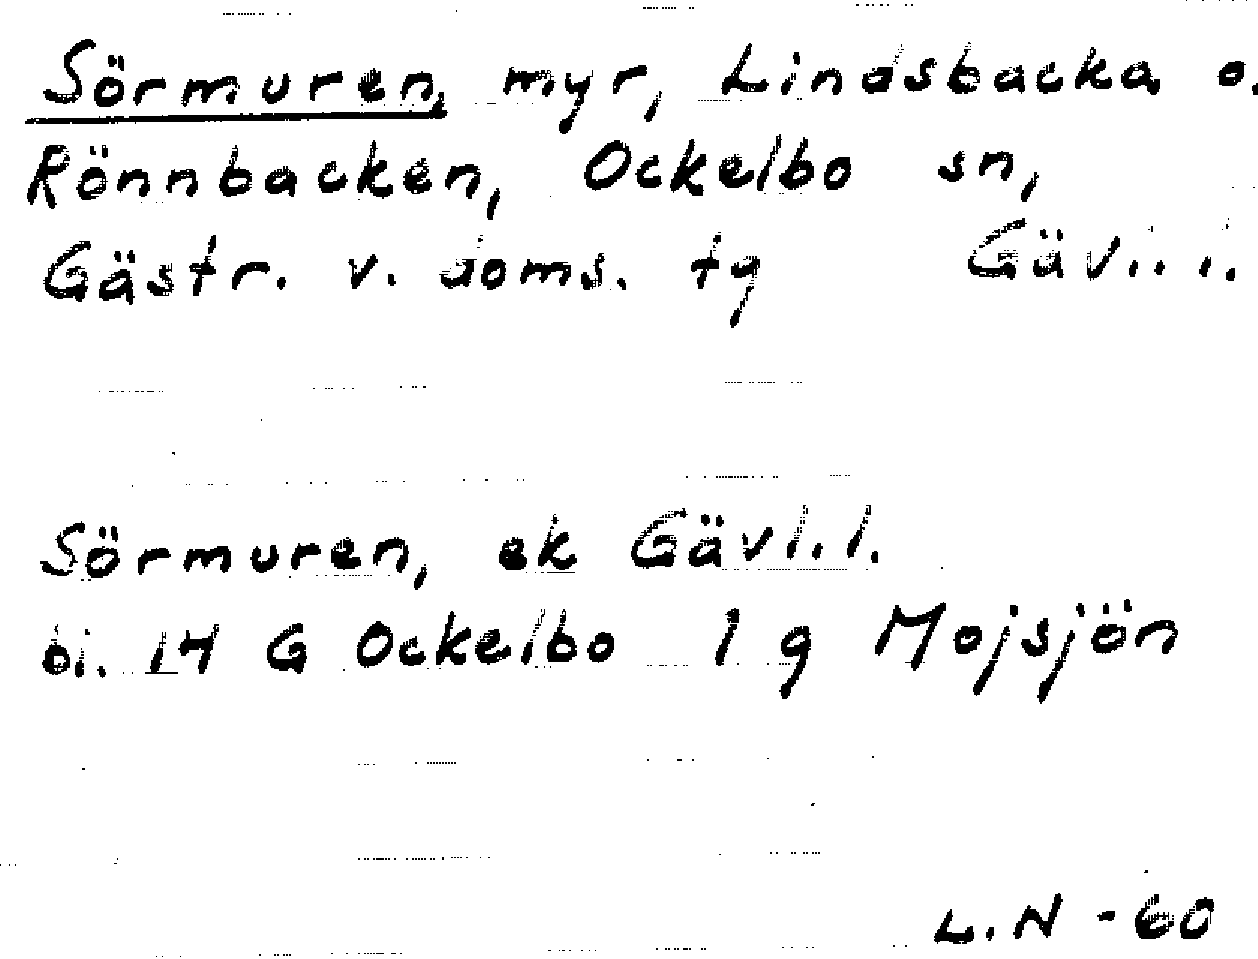 Sörmuren, myr, Lindsbacka o.
Rönnbacken, Ockelbo sn,
Gästr. v. doms. tg Gävl. l.
Sörmuren, ek Gävl. l.
bl. 14 G Ockelbo 1 g Mojsjön
L.N -60